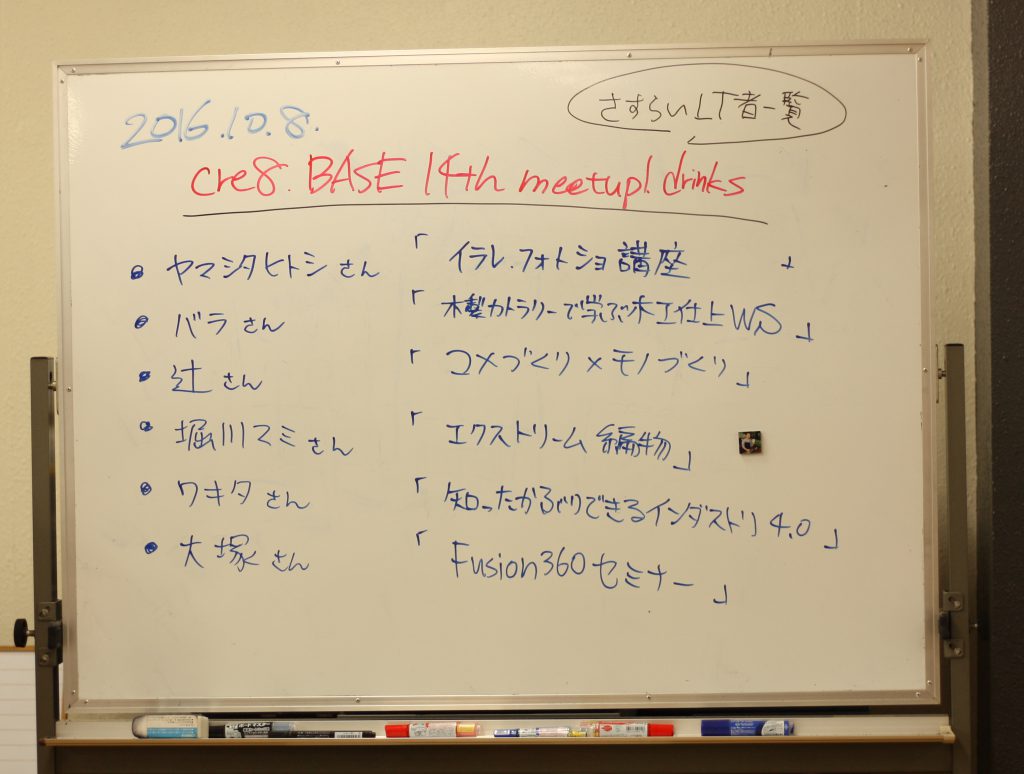 2016.10.8.
さすらいLT者一覧
cre8.BASE 14th meetup! drinks
ヤマシタヒトシさん 「イラレ.フォトショ講座」
バラさん 「木製カトラリーで学ぶ木工仕上WS」
辻さん 「コメづくり×モノづくり」
堀川マミさん 「エクストリーム編物」
ワキタさん 「知ったかぶりできるインダストリ4.0」
大塚さん 「Fusion360セミナー」